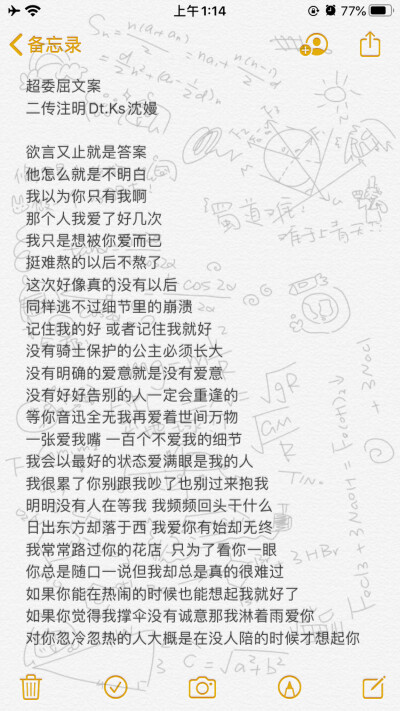 上午1:14
77%
备忘录
超委屈文案
二传注明Dt.Ks沈嫚
欲言又止就是答案
他怎么就是不明白
我以为你只有我啊
那个人我爱了好几次
我只是想被你爱而已
挺难熬的以后不熬了
这次好像真的没有以后
同样逃不过细节里的崩溃
记住我的好 或者记住我就好
没有骑士保护的公主必须长大
没有明确的爱意就是没有爱意
没有好好告别的人一定会重逢的
等你音迅全无我再爱着世间万物
一张爱我嘴 一百个不爱我的细节
我会以最好的状态爱满眼是我的人
我很累了你别跟我吵了也别过来抱我
明明没有人在等我 我频频回头干什么
日出东方却落于西 我爱你有始却无终
我常常路过你的花店  只为了看你一眼
你总是随口一说但我却总是真的很难过
如果你能在热闹的时候也能想起我就好了
如果你觉得我撑伞没有诚意那我淋着雨爱你
对你忽冷忽热的人大概是在没人陪的时候才想起你
蜀道之难
难于上青天
3HBr
C=√a²+b²